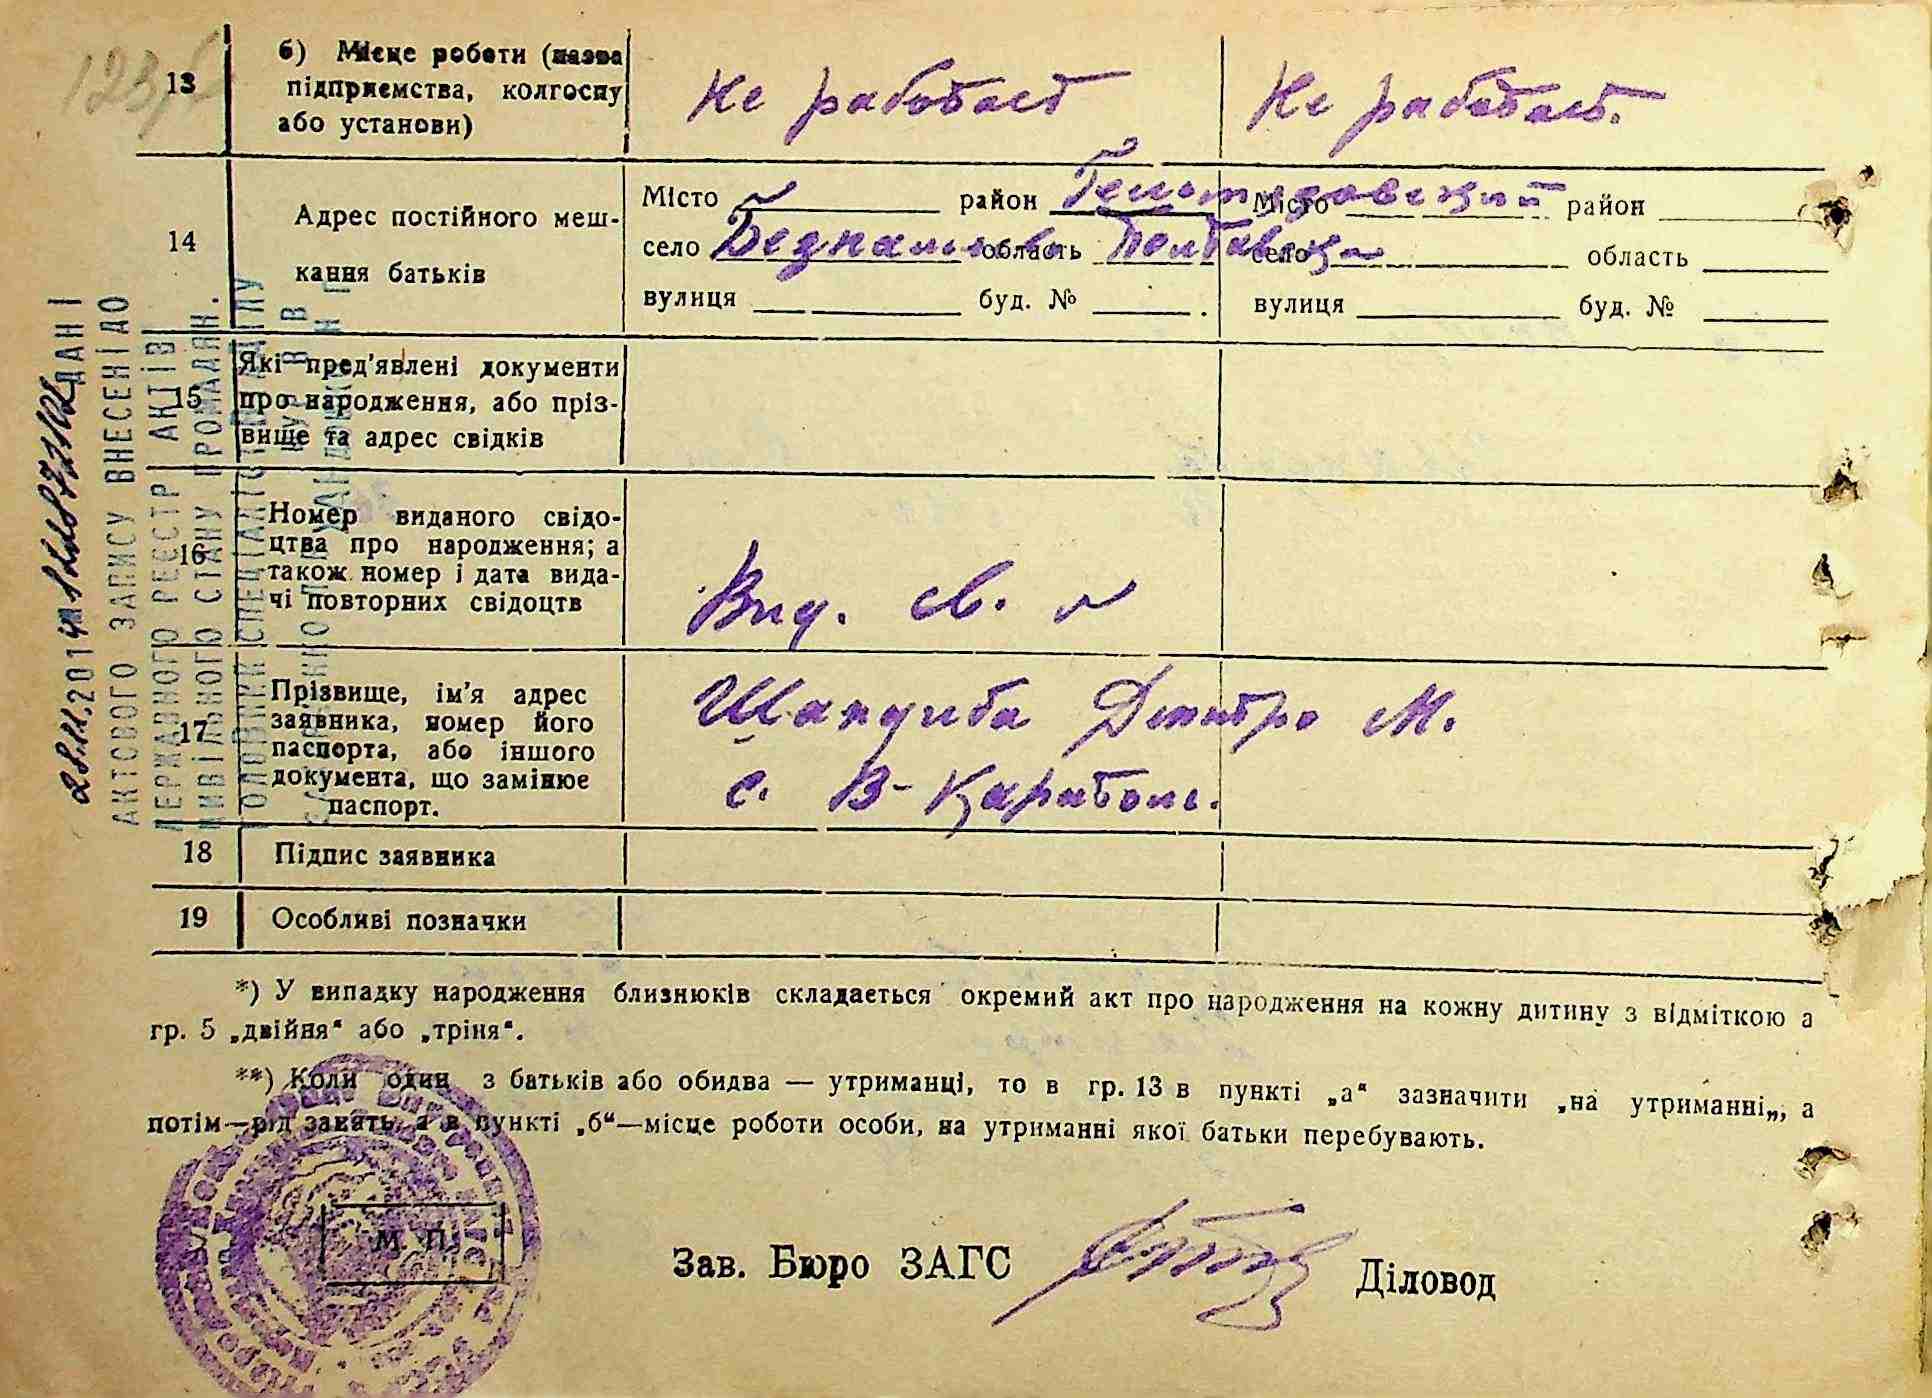 123
13
б) Місце роботи (назва
підприємства, колгоспу
або установи)
Не работает
Не работает.
14
Адрес постійного меш-
кання батьків
Місто район
село область Полтавск
вулиця буд. №
Місто район
село область
вулиця буд. №
15
Які пред'явлені документи
про народження, або пріз-
вище та адрес свідків
16
Номер виданого свідо-
цтва про народження; а
також номер і дата вида-
чі повторних свідоцтв
Вид. св.
17
Прізвище, ім'я адрес
заявника, номер його
паспорта, або іншого
документа, що замінює
паспорт.
Дмитро М.
с. В-
18
Підпис заявника
19
Особливі позначки
*) У випадку народження близнюків складається окремий акт про народження на кожну дитину з відміткою а
гр. 5 „двійня“ або „тріня“.
**) Коли один з батьків або обидва — утриманці, то в гр. 13 в пункті „а“ зазначити „на утриманні„, а
потім—рід занять, а в пункті „б“—місце роботи особи, на утриманні якої батьки перебувають.
М. П.
Зав. Бюро ЗАГС
Діловод
ДАНІ
АКТОВОГО ЗАПИСУ ВНЕСЕНІ ДО
ДЕРЖАВНОГО РЕЄСТР АКТІВ
ЦИВІЛЬНОГО СТАНУ ГРОМАДЯН.